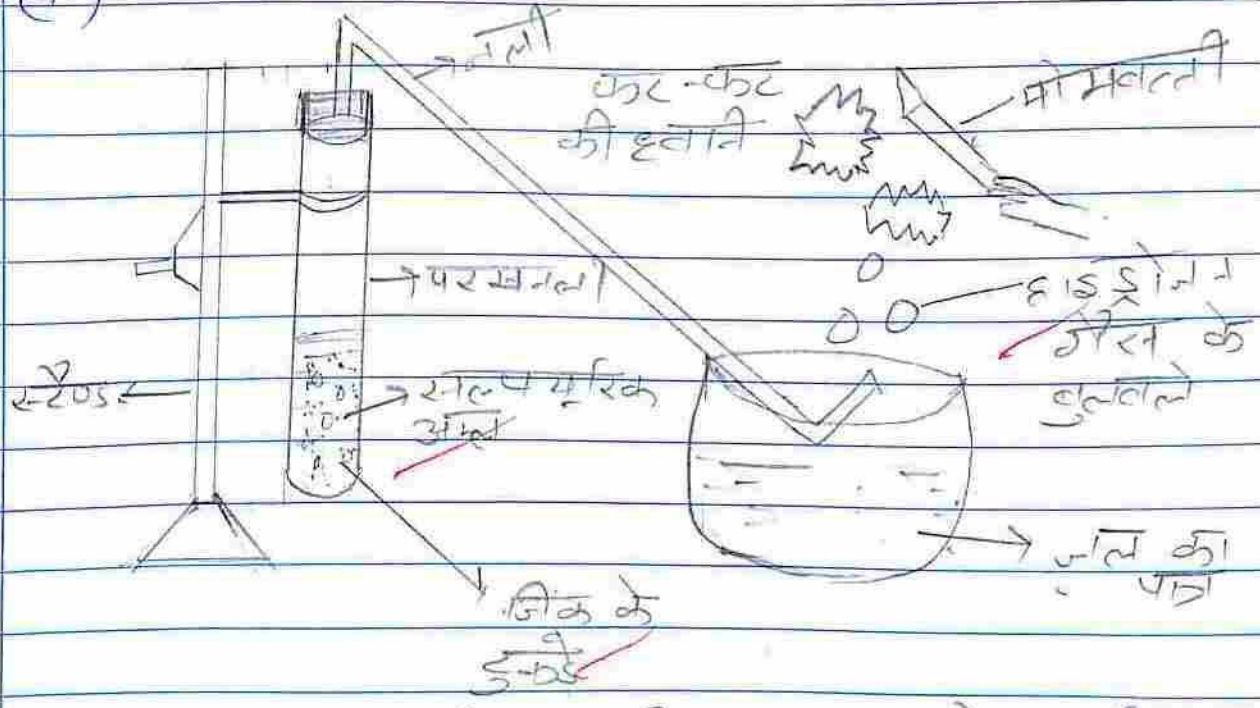 नली
कट-कट
की ध्वनि
मोमबत्ती
परखनली
हाइड्रोजन
गैस के
बुलबुले
स्टैण्ड
सल्फ्यूरिक
अम्ल
जल का
पात्र
जिंक के